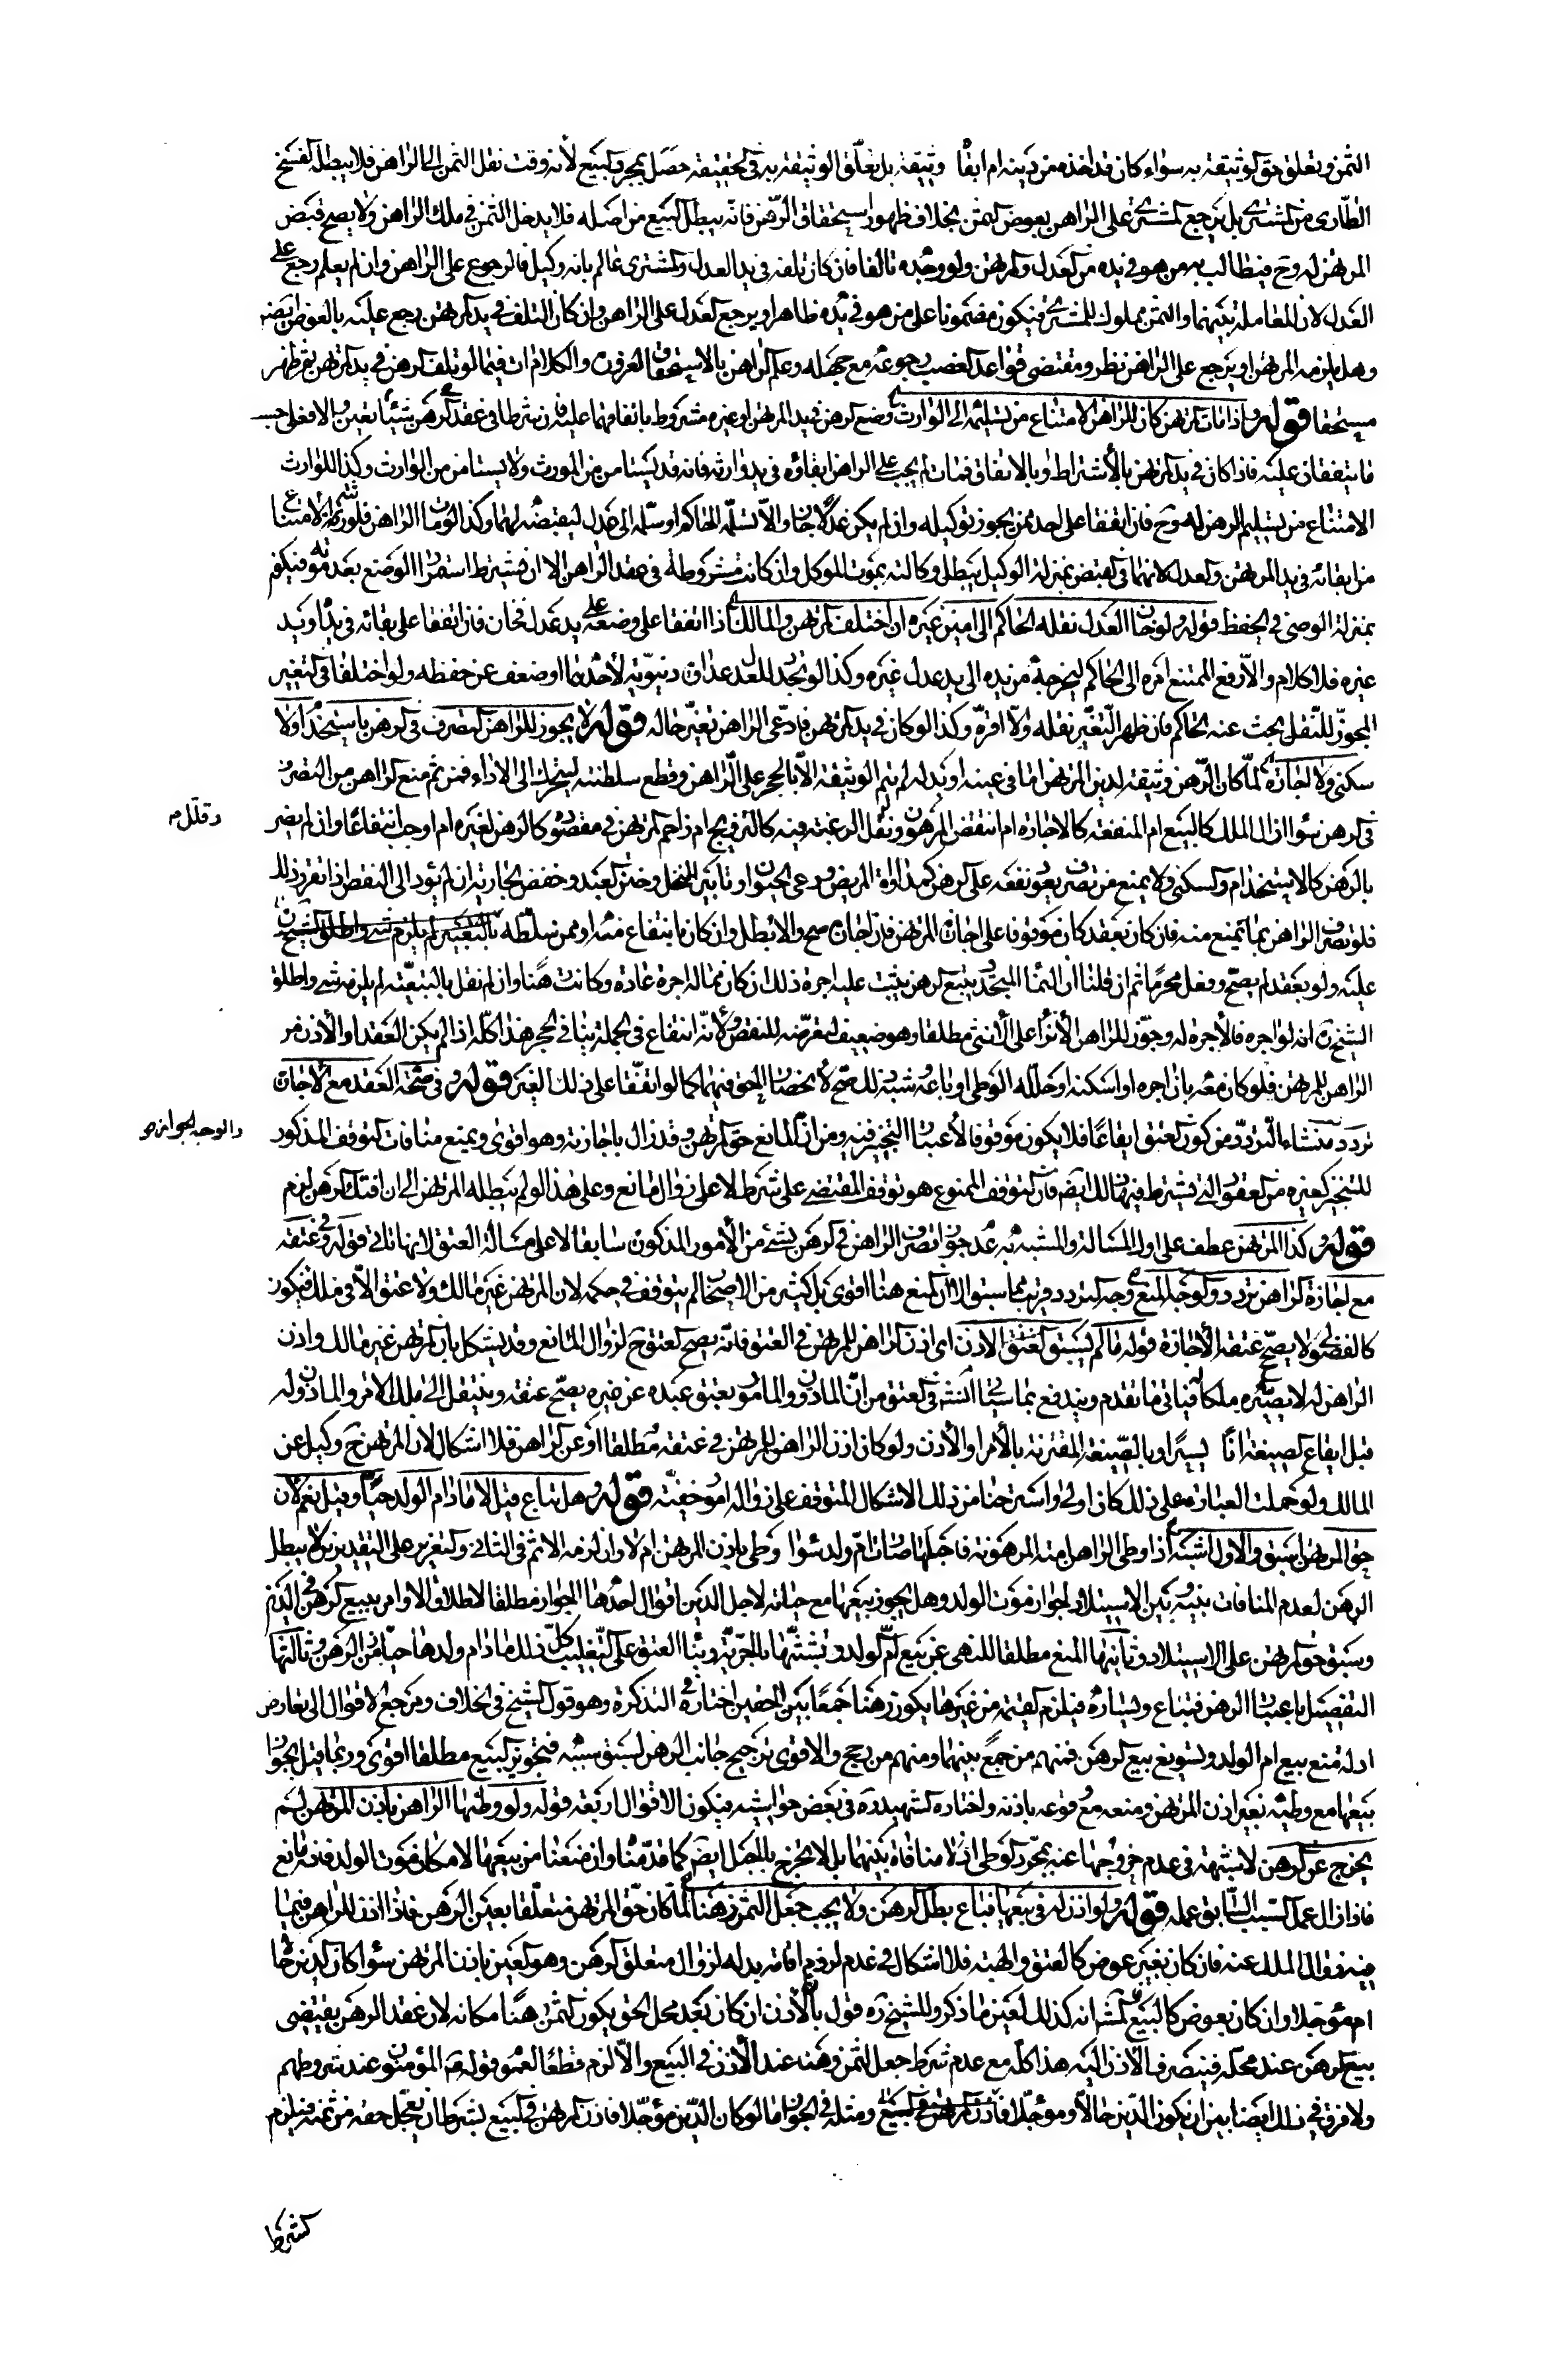 الثمن وتعلق حق الوثيقة به سواء كان قد اخذه من دينه ام ابقاه وثيقة بل تعلق الوثيقة به في الحقيقة حصل بمجرد البيع لأنه وقت نقل الثمن الى الراهن فلا يبطله الفسخ
الطارى من المشترى بل يرجع المشترى على الراهن بعوض الثمن بخلاف ظهور استحقاق الرهن فانه يبطل البيع من اصله فلا يدخل الثمن في ملك الراهن ولا يصح قبض
المرتهن له وح فيطالب به من هو في يده من العدل والمرتهن ولو وجده تالفا فان كان تلفه في يد العدل والمشترى عالم بانه وكيل فالرجوع على الراهن وان لم يعلم رجع على
العدل لان المعاملة بينهما والثمن مملوك للمشترى فيكون مضمونا على من هو في يده ظاهرا ويرجع العدل على الراهن وان كان التلف في يد المرتهن رجع عليه بالعوض ايضا
وهل يلزمه المرتهن او يرجع على الراهن نظر ومقتضى قواعد الغصب رجوعه مع جهله وعلم الراهن بالاستحقاق لغروره والكلام ات فيما لو تلف الرهن في يد المرتهن ثم ظهر
مستحقا قوله واذا مات المرتهن كان للراهن الامتناع من تسليمه الى الوارث وضع الرهن في يد المرتهن او غيره مشروط باتفاقهما عليه فان شرطا في عقد الرهن شيئا تعين والا فعلى حسب
ما يتفقان عليه فاذا كان في يد المرتهن بالأشتراط او بالاتفاق فمات لم يجب على الراهن ابقاؤه في يد وارثه فانه قد يستامن من المورث ولا يستامن من الوارث وكذا للوارث
الامتناع من تسليم الرهن له وح فان اتفقا على احد ممن يجوز توكيله وان لم يكن عدلا جاز والا تسلمه الحاكم او سلمه الى عدل ليقبضه لهما وكذا لو مات الراهن فلورثته الامتناع
من ابقائه في يد المرتهن والعدل لانهما في القبض بمنزلة الوكيل يبطل وكالته بموت الموكل وان كانت مشروطة في عقد الراهن الا ان يشترط استمرار الوضع بعد موته فيكون
بمنزلة الوصى في الحفظ قوله ولو خان العدل نقله الحاكم الى امين غيره ان اختلف المرتهن والمالك اذا اتفقا على وضعه على يد عدل فخان فان اتفقا على بقائه في يده او يد
غيره فلا كلام والا رفع الممتنع امره الى الحاكم ليخرجه من يده الى يد عدل غيره وكذا لو تجدد للعدل عداوة دنيوية لأحدهما او ضعف عن حفظه ولو اختلفا في التغير
المجوز للنقل بحث عنه الحاكم فان ظهر التغير نقله والا اقره وكذا لو كان في يد المرتهن فادعى الراهن تغير حاله قوله لا يجوز للراهن التصرف في الرهن باستخدام ولا
سكنى ولا اجارة لما كان الرهن وثيقة لدين المرتهن اما في عينه او بدله لم تتم الوثيقة الا بالحجر على الراهن وقطع سلطنته ليتحرك الى الاداء فمن ثم منع الراهن من التصرف
في الرهن سواء ازال الملك كالبيع ام المنفعة كالاجارة ام انتقض المرهون ونقل الرغبة فيه كالتزويج ام زاحم المرتهن في مقصوده كالرهن لغيره ام اوجب انتفاعا وان لم يضر
وقلل م
بالرهن كالاستخدام والسكنى ولا يمنع من تصرف يعود نفعه على الرهن كمداواة المريض ورعى الحيوان وتابير النخل وختن العبد وخفض الجارية ان لم يؤد الى النقص اذا تقرر ذلك
فلو تصرف الراهن بما يمنع منه فان كان بعقد كان موقوفا على اجازة المرتهن فان اجاز صح والا بطل وان كان بانتفاع منه او ممن سلطه
عليه ولو بعقد لم يصح وفعل محرما ثم ان قلنا ان النماء المتجدد يتبع الرهن يثبت عليه اجرة ذلك ان كان مما له اجرة عادة وكانت رهنا وان لم نقل بالتبعية لم يلزمه شى واطلق
الشيخ ره انه لو اجره فالأجرة له وجوز للراهن الأنزاء على الانثى مطلقا وهو ضعيف لتعرضه للنقص ولأنه انتفاع في الجملة ينافي الحجر هذا كله اذا لم يكن العقد او الأذن من
الراهن للمرتهن فلو كان معه بان اجره او اسكنه او حلل له الوطى او باعه شبه ذلك صح لانحصار الحق فيهما كما لو اتفقا على ذلك لغير قوله وفي صحة العقد مع الاجازة
تردد منشاء التردد من كون العتق ايقاعا فلا يكون موقوفا لأعتبار التنجيز فيه ومن ان المانع حق المرتهن وقد زال باجازته وهو اقوى ويمنع منافات التوقف المذكور
والوجه الجواز ص
للتنجيز كغيره من العقود التي يشترط فيها ذلك ايضا فان التوقف الممنوع هو توقف المقتضى على شرط لا على زوال مانع وعلى هذا لو لم يبطله المرتهن الى ان افتك الرهن لزم
قوله وكذا المرتهن عطف على اول المسئالة والمشبه به عدم جواز تصرف الراهن في الرهن بشئ من الأمور المذكورة سابقا لا على مسئالة العتق لانها تاتي قوله وفي عتقه
مع اجازة الراهن تردد والوجه المنع وجه التردد قريب مما سبق الا ان المنع هنا اقوى بل كثير من الاصحاب لم يتوقف في حكمه لان المرتهن غير مالك ولا عتق الا في ملك فيكون
كالفضولى لا يصح عتقه الأجازة قوله ما لم يسبق العتق الاذن اى اذن الراهن للمرتهن في العتق فانه يصح العتق ح لزوال المانع وقد يشكل بان المرتهن غير مالك واذن
الراهن له لا يصيره ملكا فياتي ما تقدم ويندفع بما سيجئ انش في العتق من ان الماذون والمامور بعتق عبده عن غيره يصح عتقه وينتقل الى ملك الامر والماذون له
قبل ايقاع الصيغة انا يسيرا وبالصيغة المقترنة بالأمر او الأذن ولو كان اذن الراهن للمرتهن في عتقه مطلقا او عن الراهن فلا اشكال لان المرتهن ح وكيل عن
المالك ولو حملت العبارة على ذلك كان اولى واسترحنا من ذلك الاشكال المتوقف على زواله امور خفية قوله وهل تباع قيل لا ما دام الولد حيا وقيل نعم لأن
حق المرتهن اسبق والاول اشبه اذا وطى الراهن امته المرهونة فاحبلها صارت ام ولد سواء وطى باذن المرتهن ام لا وان لزمه الاثم في الثاني والتعزير وعلى التقديرين لا يبطل
الرهن لعدم المنافات بينه وبين الاستيلاد لجواز موت الولد وهل يجوز بيعها مع حياته لاجل الدين اقوال احدها الجواز مطلقا لاطلاق الاوامر ببيع الرهن في الدين
وسبق حق المرتهن على الاستيلاد وثانيها المنع مطلقا للنهى عن بيع ام الولد وتشبثها بالحرية وبناء العتق على التغليب كل ذلك ما دام ولدها حيا من الرهن وثالثها
التفصيل باعسار الرهن فتباع ويساره فيلزم القيمة من غيرها يكون رهنا جمعا بين الحقين اختاره في التذكرة وهو قول الشيخ في الخلاف ومرجع الاقوال الى تعارض
ادلة منع بيع ام الولد وتسويغ بيع الرهن فمنهم من جمع بينهما ومنهم من رجح والاقوى ترجيح جانب الرهن لسبق سببه فتجويز البيع مطلقا اقوى وربما قيل بجواز
بيعها مع وطئه بغير اذن المرتهن ومنعه مع وقوعه باذنه واختاره الشهيد ره في بعض حواشيه فيكون الاقوال اربعة قوله ولو وطئها الراهن باذن المرتهن لم
يخرج عن الرهن لا شبهة في عدم خروجها عنه بمجرد الوطى اذ لا منافاة بينهما بل لا يخرج بالحبل ايضا كما قدمنا وان منعنا من بيعها لامكان موت الولد فانه مانع
فاذا زال عمل السبب السابق عمله قوله ولو اذن له في بيعها فباع بطل الرهن ولا يجب جعل الثمن رهنا لما كان حق المرتهن متعلقا بعين الرهن فاذا اذن للراهن فيما
فيه زوال الملك عنه فان كان بغير عوض كالعتق والهبة فلا اشكال في عدم لزوم اقامة بدله لزوال متعلق الرهن وهو العين باذن المرتهن سواء كان الدين حالا
ام مؤجلا وان كان بعوض كالبيع فالمشهور انه كذلك لعين ما ذكر وللشيخ ره قول بان الأذن ان كان بعد محل الحق يكون الثمن رهنا مكانه لان عقد الرهن يقتضى
بيع الرهن عند محله فينصرف الأذن اليه هذا كله مع عدم شرط جعل الثمن رهنه عند الأذن في البيع والا لزم قطعا لعموم قوله ص المؤمنون عند شروطهم
ولا فرق في ذلك ايضا بين ان يكون الدين حالا ومؤجلا ومثله في الجواز ما لو كان الدين مؤجلا فاذن المرتهن في البيع بشرط ان يعجل حقه من ثمنه فيلزم
كشرط